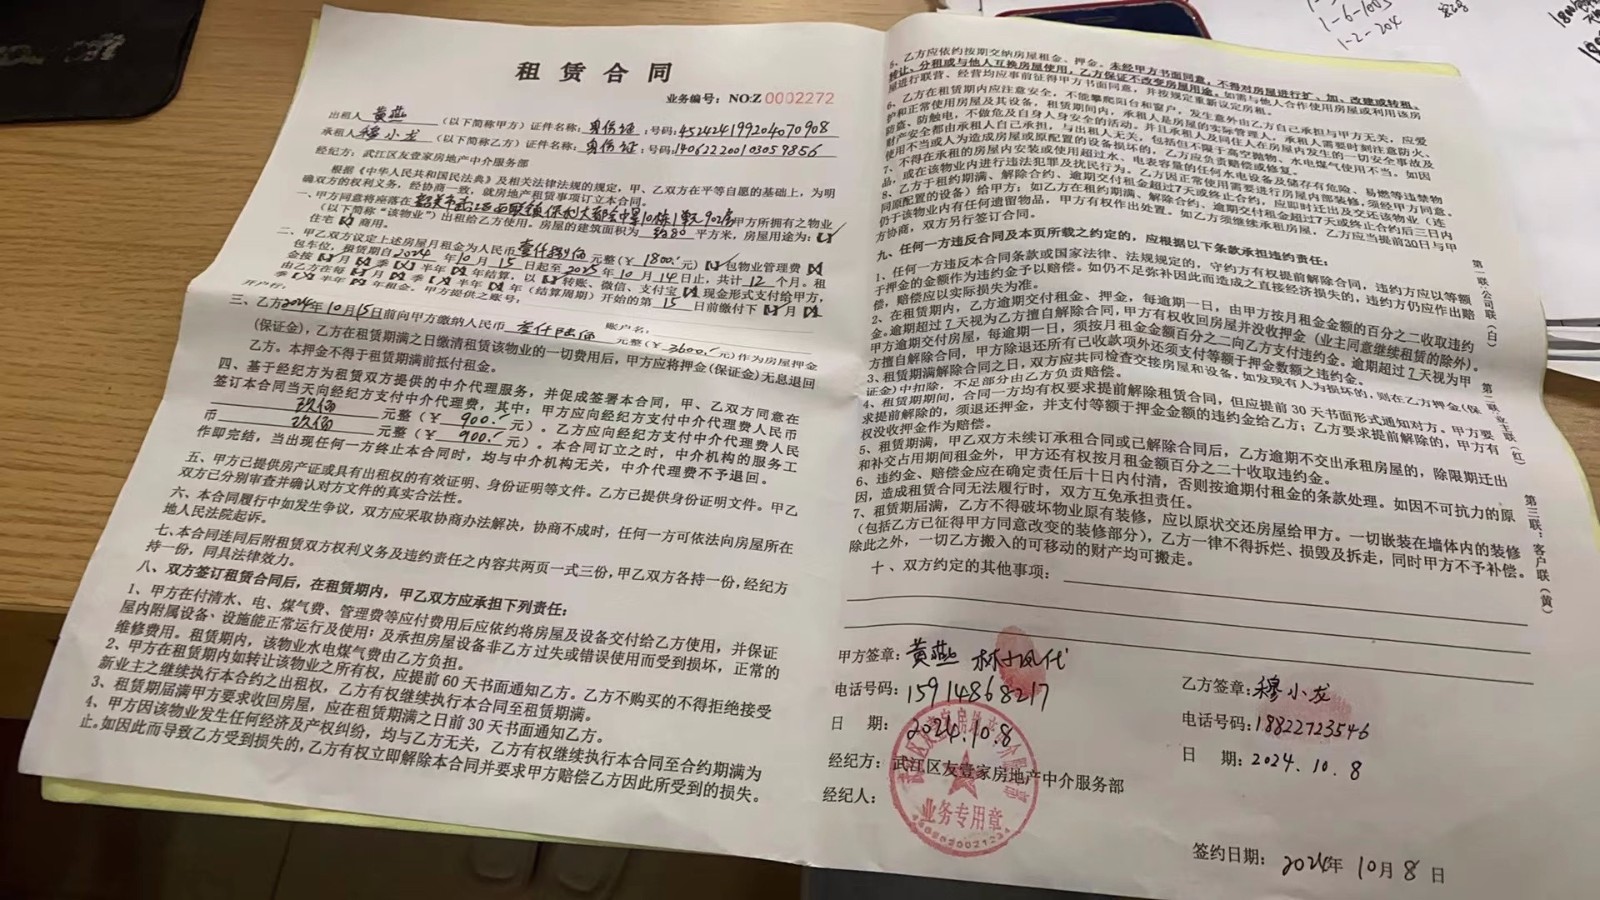 租赁合同
业务编号：NO:Z 0002272
出租人 黄燕 （以下简称甲方）证件名称：身份证 ：号码：452424199204070908
承租人 穆小龙 （以下简称乙方）证件名称：身份证 ：号码：140622200103059856
经纪方：武江区友壹家房地产中介服务部
根据《中华人民共和国民法典》及相关法律法规的规定，甲、乙双方在平等自愿的基础上，为明
确双方的权利义务，经协商一致，就房地产租赁事项订立本合同。
一、甲方同意将座落在 韶关市武江区西联镇保利大都会中翠10栋1单元902房 甲方所拥有之物业
（以下简称“该物业”）出租给乙方使用。房屋的建筑面积为 约80 平方米，房屋用途为：
住宅 商用。
二、甲乙双方议定上述房屋月租金为人民币 壹仟捌佰 元整（￥1800.元） 包物业管理费
包车位，租赁期自2024年10月15日起至2025年10月14日止，共计12个月。租
金按 月 季 半年 年结算，以 转账、微信、支付宝 现金形式支付给甲方，
由乙方在每 月 季 半年 年（结算周期）开始的第15日前缴付下 月
季 半年 年租金，甲方提供之账号：
开户行： 账户名：
三、乙方2024年10月15日前向甲方缴纳人民币 叁仟陆佰 元整（￥3600.元）作为房屋押金
（保证金），乙方在租赁期满之日缴清租赁该物业的一切费用后，甲方应将押金（保证金）无息退回
乙方。本押金不得于租赁期满前抵付租金。
四、基于经纪方为租赁双方提供的中介代理服务，并促成签署本合同，甲、乙双方同意在
签订本合同当天向经纪方支付中介代理费，其中：甲方应向经纪方支付中介代理费人民币
玖佰 元整（￥900.元）。乙方应向经纪方支付中介代理费人民
币 玖佰 元整（￥900.元）。本合同订立之时，中介机构的服务工
作即完结，当出现任何一方终止本合同时，均与中介机构无关，中介代理费不予退回。
五、甲方已提供房产证或具有出租权的有效证明、身份证明等文件。乙方已提供身份证明文件。甲乙
双方已分别审查并确认对方文件的真实合法性。
六、本合同履行中如发生争议，双方应采取协商办法解决，协商不成时，任何一方可依法向房屋所在
地人民法院起诉。
七、本合同连同后附租赁双方权利义务及违约责任之内容共两页一式三份，甲乙双方各持一份，经纪方
持一份，同具法律效力。
八、双方签订租赁合同后，在租赁期内，甲乙双方应承担下列责任：
1、甲方在付清水、电、煤气费、管理费等应付费用后应依约将房屋及设备交付给乙方使用，并保证
屋内附属设备、设施能正常运行及使用；及承担房屋设备非乙方过失或错误使用而受到损坏，正常的
维修费用。租赁期内，该物业水电煤气费由乙方负担。
2、甲方在租赁期内如转让该物业之所有权，应提前60天书面通知乙方。乙方不购买的不得拒绝接受
新业主之继续执行本合约之出租权，乙方有权继续执行本合同至租赁期满。
3、租赁期届满甲方要求收回房屋，应在租赁期满之日前30天书面通知乙方。
4、甲方因该物业发生任何经济及产权纠纷，均与乙方无关，乙方有权继续执行本合同至合约期满为
止。如因此而导致乙方受到损失的，乙方有权立即解除本合同并要求甲方赔偿乙方因此所受到的损失。
5、乙方应依约按期交纳房屋租金、押金。未经甲方书面同意，不得对房屋进行扩、加、改建或转租、
转让、分租或与他人互换房屋使用，乙方保证不改变房屋用途。如需与他人合作使用房屋或利用该房
屋进行联营、经营均应事前征得甲方书面同意，并按规定重新议定房租。
6、乙方在租赁期内应注意安全，不能攀爬阳台和窗户，发生意外由乙方自己承担与甲方无关，应爱
护和正常使用房屋及其设备，租赁期间内，承租人是房屋的实际管理人，承租人需要时刻注意防火、
防盗、防触电，不做危及自身人身安全的活动。并且承租人及同住人在房屋内发生的一切安全事故及
财产安全都由承租人自己承担，与出租人无关，包括但不限于高空抛物、水电煤气使用不当。如因
使用不当或人为造成房屋或原配置的设备损坏的，乙方应负责赔偿或修复。
7、不得在承租的房屋内安装或使用超过水、电表容量的任何水电设备及储存有危险、易燃等违禁物
品，或在该物业内进行违法犯罪及扰民行为。乙方因正常使用需要进行房屋内部装修，须经甲方同意。
8、乙方于租约期满、解除合约、逾期交付租金超过7天或终止合约，应即时迁出及交还该物业（连
同原配置的设备）给甲方；如乙方在租约期满、解除合约、逾期交付租金超过7天或终止合约后三日内
仍于该物业内有任何遗留物品，甲方有权作出处置。如乙方须继续承租房屋，乙方应当提前30日与甲
方协商，双方另行签订合同。
九、任何一方违反合同及本页所载之约定的，应根据以下条款承担违约责任：
1、任何一方违反本合同条款或国家法律、法规规定的，守约方有权提前解除合同，违约方应以等额
于押金的金额作为违约金予以赔偿。如仍不足弥补因此而造成之直接经济损失的，违约方仍应作出赔
偿，赔偿应以实际损失为准。
2、在租赁期内，乙方逾期交付租金、押金，每逾期一日，由甲方按月租金金额的百分之二收取违约
金。逾期超过7天视为乙方擅自解除合同，甲方有权收回房屋并没收押金（业主同意继续租赁的除外）。
甲方逾期交付房屋，每逾期一日，须按月租金金额百分之二向乙方支付违约金。逾期超过7天视为甲
方擅自解除合同，甲方除退还所有已收款项外还须支付等额于押金数额之违约金。
3、租赁期满解除合同之日，双方应共同检查交接房屋和设备，如发现有人为损坏的，则在乙方押金（保
证金）中扣除，不足部分由乙方负责赔偿。
4、租赁期期间，合同一方均有权要求提前解除租赁合同，但应提前30天书面形式通知对方。甲方要
求提前解除的，须退还押金，并支付等额于押金金额的违约金给乙方；乙方要求提前解除的，甲方有
权没收押金作为赔偿。
5、租赁期满，甲乙双方未续订承租合同或已解除合同后，乙方逾期不交出承租房屋的，除限期迁出
和补交占用期间租金外，甲方还有权按月租金额百分之二十收取违约金。
6、违约金、赔偿金应在确定责任后十日内付清，否则按逾期付租金的条款处理。如因不可抗力的原
因，造成租赁合同无法履行时，双方互免承担责任。
7、租赁期届满，乙方不得破坏物业原有装修，应以原状交还房屋给甲方。一切嵌装在墙体内的装修
（包括乙方已征得甲方同意改变的装修部分），乙方一律不得拆烂、损毁及拆走，同时甲方不予补偿。
除此之外，一切乙方搬入的可移动的财产均可搬走。
十、双方约定的其他事项：
甲方签章：黄燕 林小凤代
电话号码：15914868217
日 期：2024.10.8
经纪方：武江区友壹家房地产中介服务部
经纪人：
业务专用章
乙方签章：穆小龙
电话号码：18822723546
日 期：2024.10.8
签约日期：2024年10月8日
第一联：公司联（白）
第二联：业主联（红）
第三联：客户联（黄）
1-6-1003
1-2-204